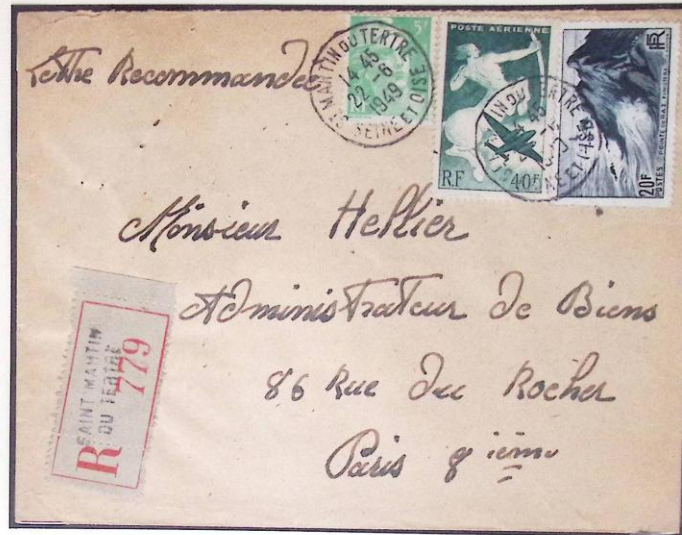 Lettre Recommandée
5F
ST MARTIN DU TERTRE
14 45
22 -6
1949
SEINE ET OISE
POSTE AÉRIENNE
RF 40F
RF
POINTE DU RAZ FINISTERE
POSTES 20F
Monsieur Hellier
Administrateur de Biens
86 Rue du Rocher
Paris 8 ième
SAINT MARTIN
DU TERTRE
R 779